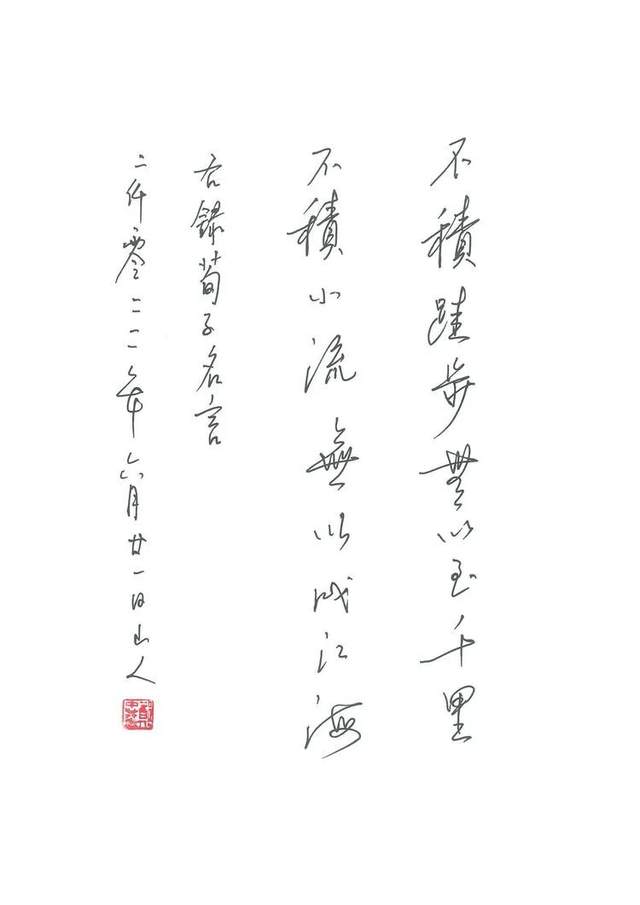 不積跬步無以至千里
不積小流無以成江海
右錄荀子名言
二仟零二二年六月廿一日山人